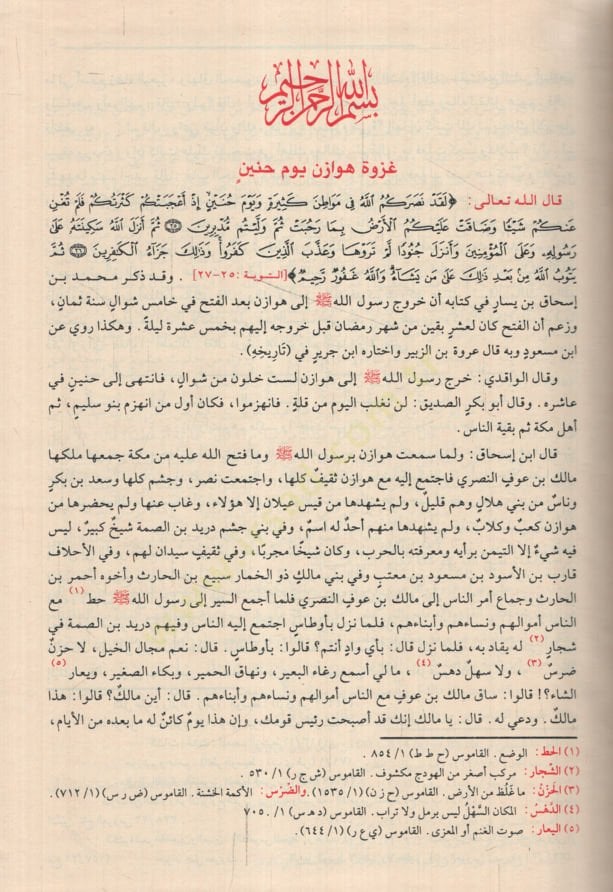 بسم الله الرحمن الرحيم
غزوة هوازن يوم حنينٍ
قال الله تعالى: ﴿لَقَدْ نَصَرَكُمُ اللَّهُ فِي مَوَاطِنَ كَثِيرَةٍ وَيَوْمَ حُنَيْنٍ إِذْ أَعْجَبَتْكُمْ كَثْرَتُكُمْ فَلَمْ تُغْنِ
عَنكُمْ شَيْئًا وَضَاقَتْ عَلَيْكُمُ الْأَرْضُ بِمَا رَحُبَتْ ثُمَّ وَلَّيْتُم مُّدْبِرِينَ ﴿٢٥﴾ ثُمَّ أَنزَلَ اللَّهُ سَكِينَتَهُ عَلَىٰ
رَسُولِهِ وَعَلَى الْمُؤْمِنِينَ وَأَنزَلَ جُنُودًا لَّمْ تَرَوْهَا وَعَذَّبَ الَّذِينَ كَفَرُوا وَذَٰلِكَ جَزَاءُ الْكَافِرِينَ ﴿٢٦﴾ ثُمَّ
يَتُوبُ اللَّهُ مِن بَعْدِ ذَٰلِكَ عَلَىٰ مَن يَشَاءُ وَاللَّهُ غَفُورٌ رَّحِيمٌ﴾ [التوبة: ٢٥-٢٧] . وقد ذكر محمد بن
إسحاق بن يسارٍ في كتابه أن خروج رسول الله ﷺ إلى هوازن بعد الفتح في خامس شوالٍ سنة ثمانٍ،
وزعم أن الفتح كان لعشرٍ بقين من شهر رمضان قبل خروجه إليهم بخمس عشرة ليلةً . وهكذا روي عن
ابن مسعودٍ وبه قال عروة بن الزبير واختاره ابن جريرٍ في (تَارِيخِهِ) .
وقال الواقدي: خرج رسول الله ﷺ إلى هوازن لست خلون من شوالٍ، فانتهى إلى حنينٍ في
عاشره . وقال أبو بكرٍ الصديق: لن نغلب اليوم من قلةٍ . فانهزموا، فكان أول من انهزم بنو سليمٍ، ثم
أهل مكة ثم بقية الناس .
قال ابن إسحاق: ولما سمعت هوازن برسول الله ﷺ وما فتح الله عليه من مكة جمعها ملكها
مالك بن عوفٍ النصري فاجتمع إليه مع هوازن ثقيفٌ كلها، واجتمعت نصر، وجشم كلها وسعد بن بكرٍ
وناسٌ من بني هلالٍ وهم قليلٌ، ولم يشهدها من قيس عيلان إلا هؤلاء، وغاب عنها ولم يحضرها من
هوازن كعبٌ وكلابٌ، ولم يشهدها منهم أحدٌ له اسمٌ، وفي بني جشم دريد بن الصمة شيخٌ كبيرٌ، ليس
فيه شيءٌ إلا التيمن برأيه ومعرفته بالحرب، وكان شيخًا مجربًا، وفي ثقيفٍ سيدان لهم، وفي الأحلاف
قارب بن الأسود بن مسعود بن معتبٍ وفي بني مالكٍ ذو الخمار سبيع بن الحارث وأخوه أحمر بن
الحارث وجماع أمر الناس إلى مالك بن عوفٍ النصري فلما أجمع السير إلى رسول الله ﷺ حط (١) مع
الناس أموالهم ونساءهم وأبناءهم، فلما نزل بأوطاسٍ اجتمع إليه الناس وفيهم دريد بن الصمة في
شجارٍ (٢) له يقاد به، فلما نزل قال: بأي وادٍ أنتم؟ قالوا: بأوطاسٍ . قال: نعم مجال الخيل، لا حزنٌ
ضرسٌ (٣) ، ولا سهلٌ دهسٌ (٤) ، ما لي أسمع رغاء البعير، ونهاق الحمير، وبكاء الصغير، ويعار (٥)
الشاء؟! قالوا: ساق مالك بن عوفٍ مع الناس أموالهم ونساءهم وأبناءهم . قال: أين مالكٌ؟ قالوا: هذا
مالكٌ . ودعي له . قال: يا مالك إنك قد أصبحت رئيس قومك، وإن هذا يومٌ كائنٌ له ما بعده من الأيام،
(١) الحط: الوضع . القاموس (ح ط ط) ١/ ٨٥٤ .
(٢) الشِّجار: مركب أصغر من الهودج مكشوف . القاموس (ش ج ر) ١/ ٥٣٠ .
(٣) الحَزْنُ: ما غَلُظ من الأرض . القاموس (ح ز ن) (١/ ١٥٣٥) .والضِّرْس: الأكمة الخشنة . القاموس (ض ر س) (١/ ٧١٢).
(٤) الدَّهْسُ: المكان السَّهْلُ ليس برمل ولا تراب . القاموس (د هـ س) ١/ ٧٠٥ .
(٥) اليعار: صوت الغنم أو المعزى . القاموس (ي ع ر) (١/ ٦٤٤).